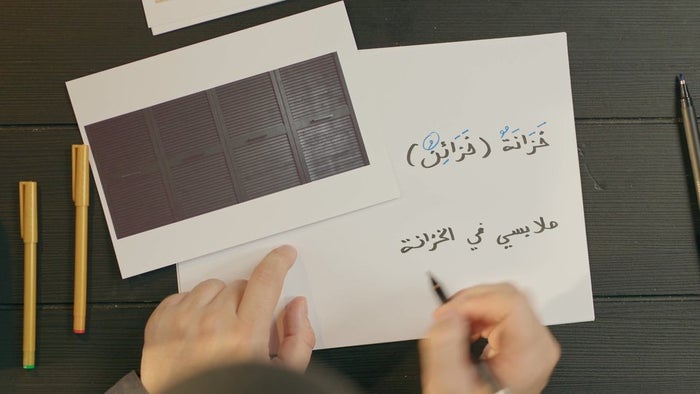 خَزَانَةٌ (خَزَائِنُ)
ملابسي في الخزانة